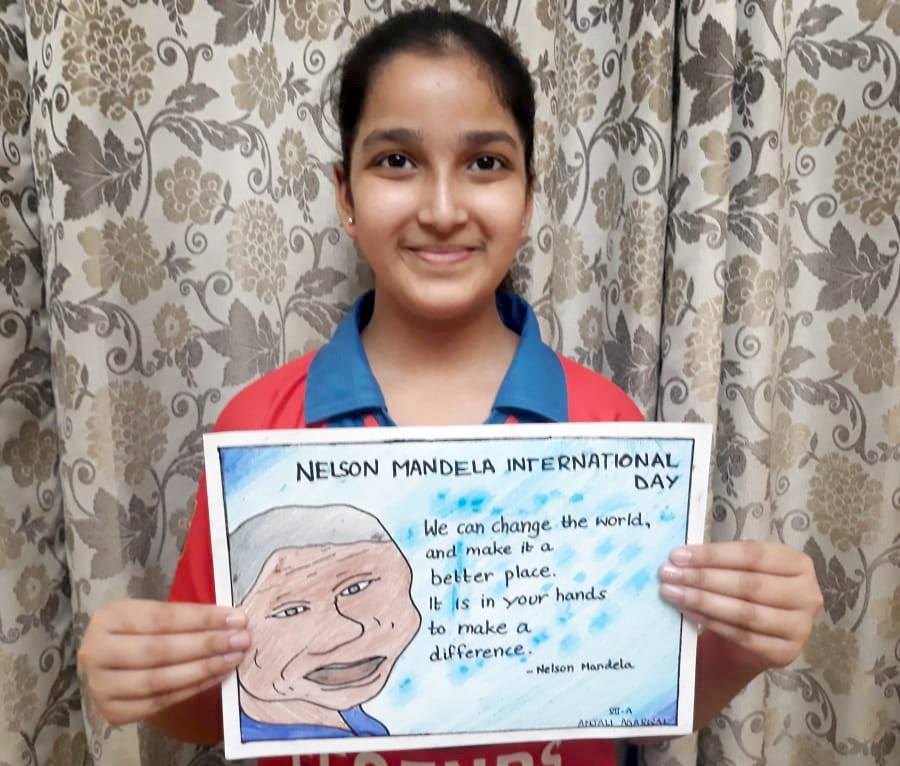 NELSON MANDELA INTERNATIONAL
DAY
We can change the world,
and make it a
better place.
It is in your hands
to make a
difference.
- Nelson Mandela
VII-A
ANJALI AGARWAL